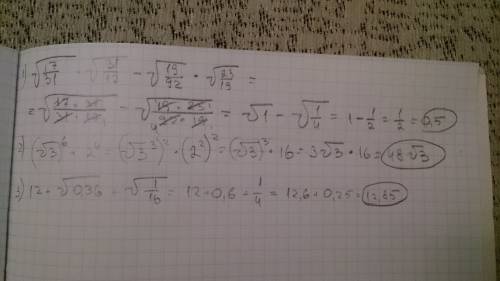 1) √(17/31) · √(31/17) − √(19/92) · √(23/19) =
= √(17·31/31·17) − √(19·23/92·19) = √1 − √(1/4) = 1 − 1/2 = 1/2 = 0,5
2) (√3)⁶ · 2⁴ = (√3³)² · (2²)² = (√3)³ · 16 = 3√3 · 16 = 48√3
3) 12 + √0,36 + √(1/16) = 12 + 0,6 + 1/4 = 12,6 + 0,25 = 12,85